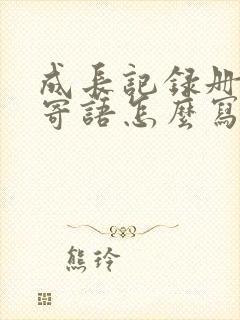 成長記録册
寄語怎麼寫
熊玲